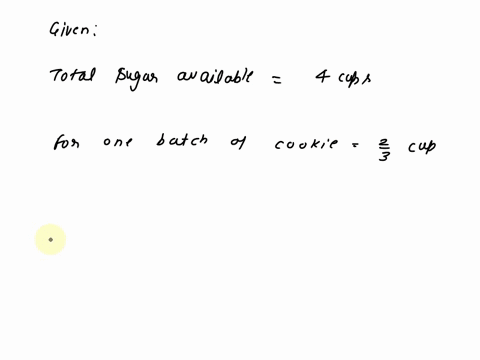 Given:
Total sugar available = 4 cups
for one batch of cookie = 2/3 cup